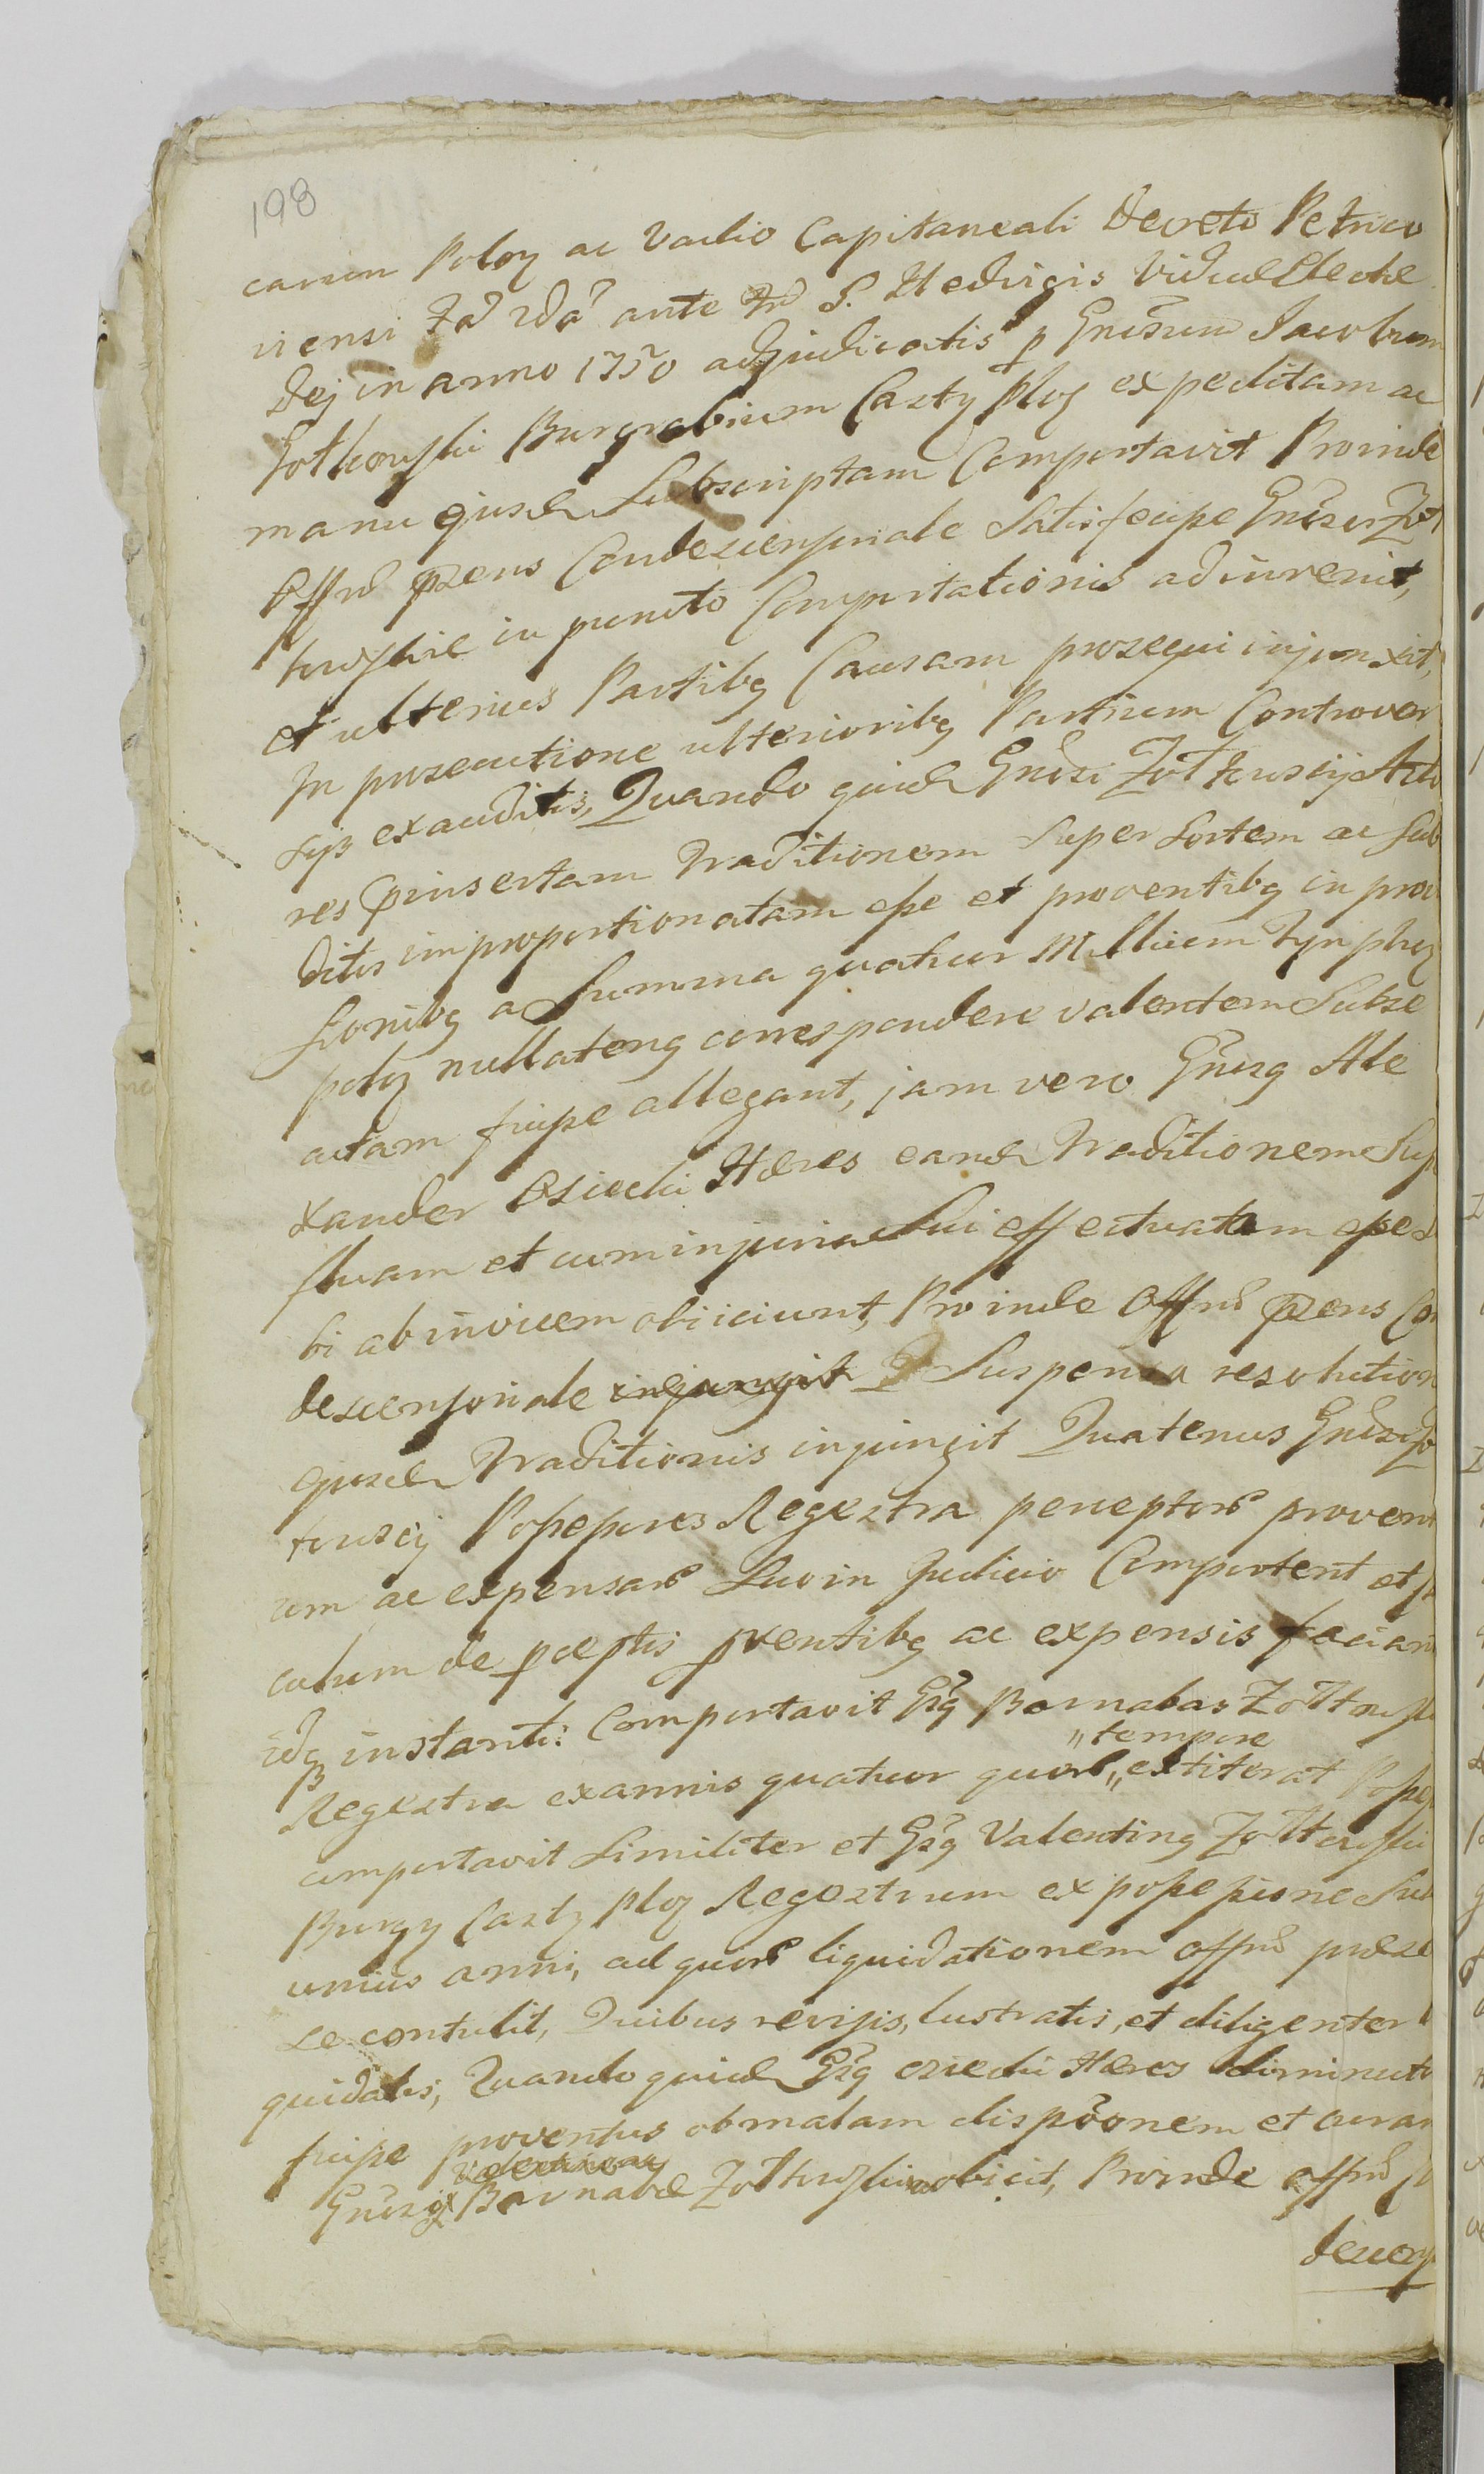 198
carum Poloꝝ ac Vadio Capitaneali Decreto Petrico
viensi ante S. Hedvigis Viduæ Electæ
Dej in anno 1750 adjudicatis p Gnosum Jacobum
Żołtowski Burgrabium Castꝝ Ploꝝ expeditam ac
manu ejusd Subscriptam Comportavit Proinde
Offm præns Condescensoriale Satisfecisse Gnosos Żoł
towskie in puncto Comportationis adinvenit,
et ulterius Partibꝫ Causam prosequi injunxit,
In prosecutione ulterioribꝫ Partium Controver
sijs exauditis, Quando quid Gnosi Żołtowscij Acto
res præinsertam Traditionem Super Sortem ac Sub
ditos improportionatam esse et proventibꝫ in prov
sionibꝫ a Summa quatuor Millium Tynphoꝝ
poloꝝ nullatenꝫ correspondere valentem Subse
cutam fuisse allegant, jam vero Gnosꝫ Ale
xander Osiecki Hæres eand Traditionem Sup
fluam et cum injuria Sui effectuatam esse
bi abinvicem obiiciunt, Proinde Offm præns Con
descensoriale injungit Suspensa resolution
ejusd Traditionis injungit Quatenus Gnosi Żo
towscij Possessores Regestra perceptor provent
um ac expensar Suo in Judicio Comportent et
culum de pceptis pventibꝫ ac expensis faciant
idꝫ instanti: Comportavit Gsꝫ Barnabas Żołtowski
Regestra ex annis quatuor quor „tempore„ extiterat Posses
comportavit Similiter et Gsꝫ Valentinꝫ Żołtowski
Burgꝫ Castꝝ Ploꝝ Regestrum ex possessione Sua
unius anni, ad quor liquidationem offm præse
se contulit, Quibus revisis, lustratis, et diligenter li
quidatis, Quando quid Gsꝫ Osiecki Hæres diminuto
fuisse proventus ob malam disponem et curam
Gnosi Barnabæ Żołtowski obicit, Proinde offm
Descens